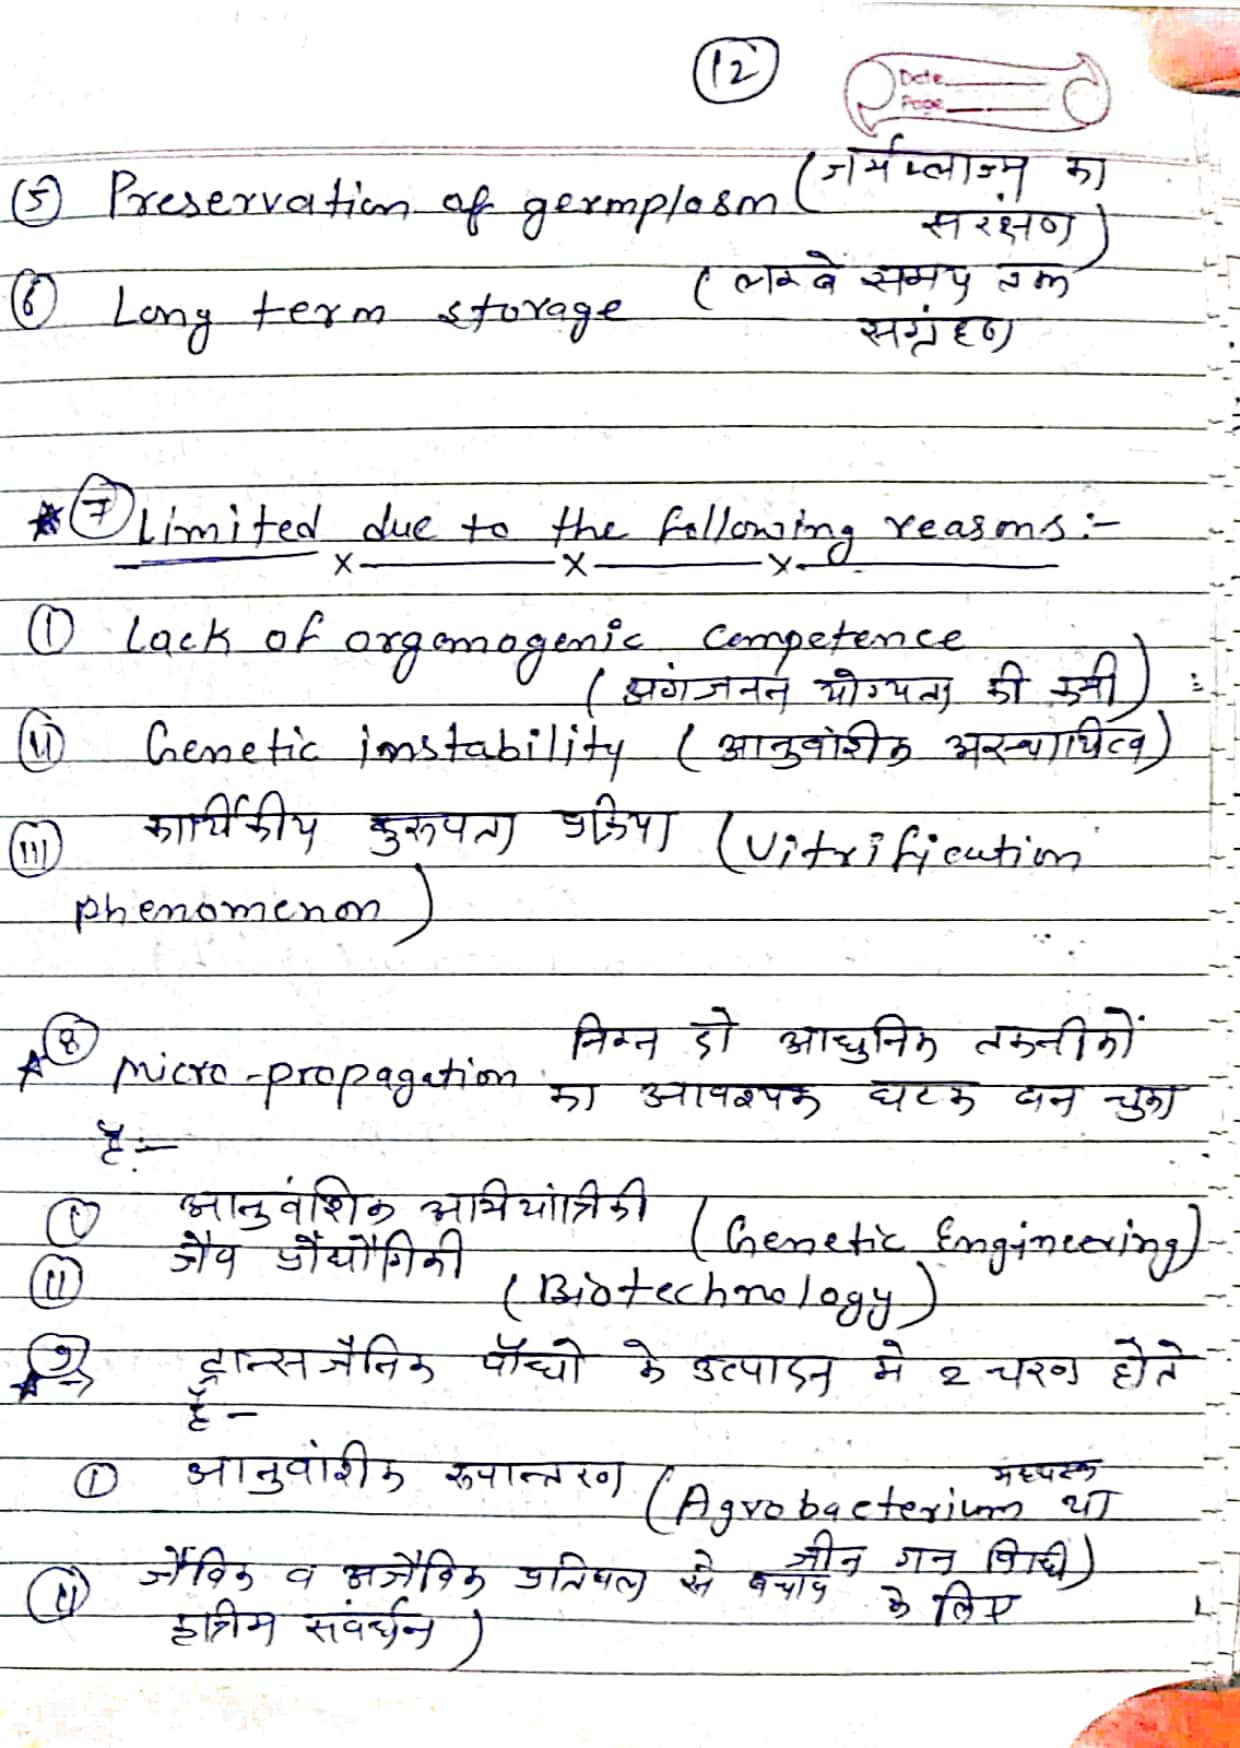 12
Date
Page
(5) Preservation of germplasm (जर्मप्लाज्म का
सरंक्षण)
(6) Long term storage (लम्बे समय तक
सग्रंहण)
★ (7) Limited due to the following reasons:-
x x x
(I) Lack of organogenic competence
(अगंजनन योग्यता की कमी)
(II) Genetic instability (आनुवांशीक अस्थायित्व)
(III) कार्यिकीय कुरुपता प्रक्रिया (Vitrification
phenomenon)
★ (8) micro-propagation निम्न दो आधुनिक तकनीकों
का आवश्यक घटक बन चुका
है:-
(I) आनुवंशिक अभियांत्रिकी (Genetic Engineering)
(II) जैव प्रौद्योगिकी (Biotechnology)
★ (9) ट्रान्सजैनिक पौधो के उत्पादन मे 2 चरण होते
हैं -
(I) आनुवांशीक रुपान्तरण (Agrobacterium मध्यस्थ या
जीन गन विधि)
(II) जैविक व अजैविक प्रतिबल से बचाव के लिए
कृत्रिम संवर्धन)